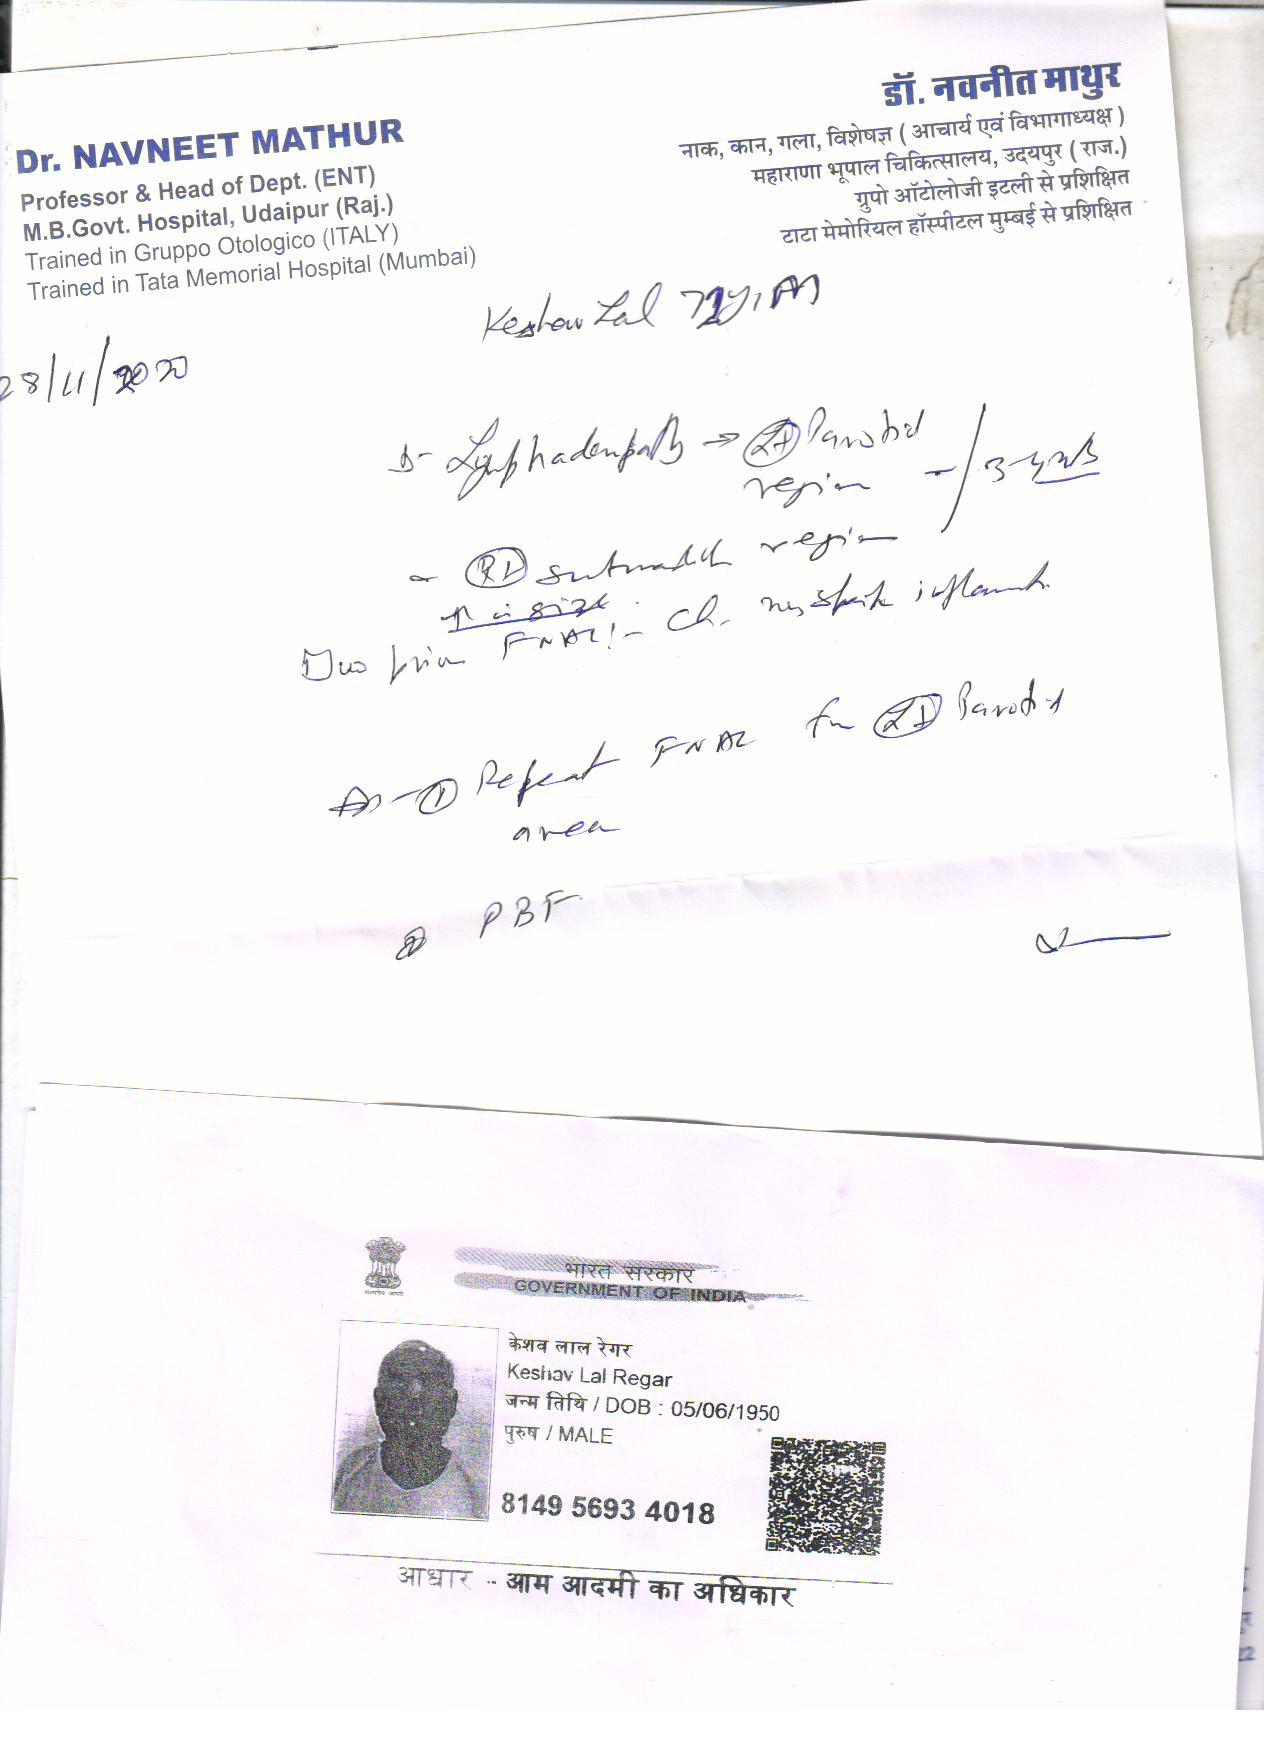 Dr. NAVNEET MATHUR
Professor & Head of Dept. (ENT)
M.B.Govt. Hospital, Udaipur (Raj.)
Trained in Gruppo Otologico (ITALY)
Trained in Tata Memorial Hospital (Mumbai)
डॉ. नवनीत माथुर
नाक, कान, गला, विशेषज्ञ ( आचार्य एवं विभागाध्यक्ष )
महाराणा भूपाल चिकित्सालय, उदयपुर ( राज.)
ग्रुपो ऑटोलोजी इटली से प्रशिक्षित
टाटा मेमोरियल हॉस्पीटल मुम्बई से प्रशिक्षित
Keshav Lal
28/11/2020
Lymphadenopathy → Lt Parotid
region
Rt region
↑ in size
FNAC :- Ch.
① Repeat FNAC Lt Parotid
area
② PBF
भारत सरकार
GOVERNMENT OF INDIA
केशव लाल रेगर
Keshav Lal Regar
जन्म तिथि / DOB : 05/06/1950
पुरुष / MALE
8149 5693 4018
आधार - आम आदमी का अधिकार